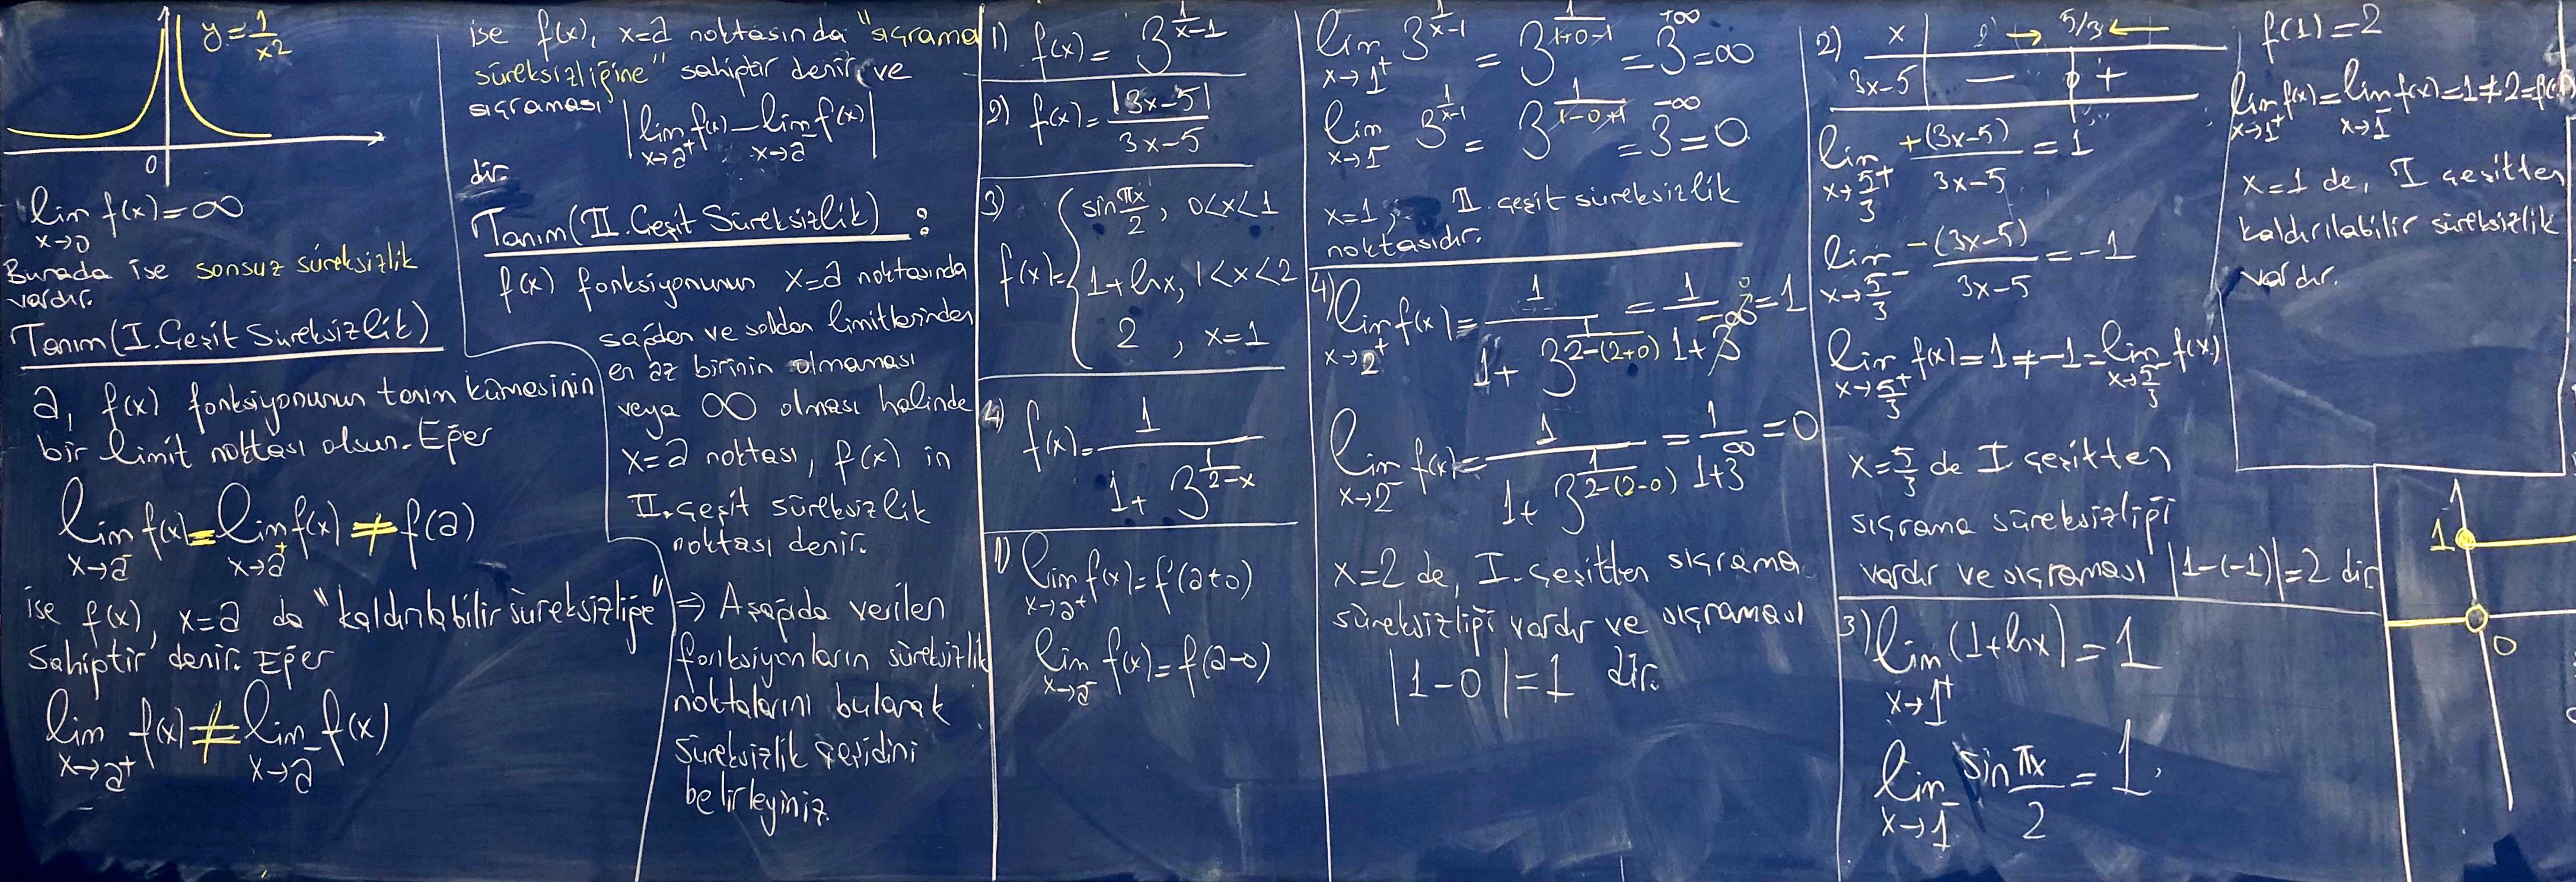 y = 1/x²
0
lim f(x) = ∞
x→0
Burada ise sonsuz süreksizlik
vardır.
Tanım (I. Çeşit Süreksizlik)
a, f(x) fonksiyonunun tanım kümesinin
bir limit noktası olsun. Eğer
lim f(x) = lim f(x) ≠ f(a)
x→a⁻ x→a⁺
ise f(x), x=a da "kaldırılabilir süreksizliğe"
sahiptir denir. Eğer
lim f(x) ≠ lim f(x)
x→a⁺ x→a⁻
ise f(x), x=a noktasında "sıçrama
süreksizliğine" sahiptir denir ve
sıçraması
|lim f(x) − lim f(x)|
x→a⁺ x→a⁻
dir.
Tanım (II. Çeşit Süreksizlik) :
f(x) fonksiyonunun x=a noktasında
sağdan ve soldan limitlerinden
en az birinin olmaması
veya ∞ olması halinde
x=a noktası, f(x) in
II. çeşit süreksizlik
noktası denir.
⇒ Aşağıda verilen
fonksiyonların süreksizlik
noktalarını bularak
süreksizlik çeşidini
belirleyiniz.
1) f(x) = 3^(1/(x−1))
2) f(x) = |3x−5| / (3x−5)
3)
sin πx/2, 0<x<1
f(x) = { 1+lnx, 1<x<2
2, x=1
4) f(x) = 1 / (1+3^(1/(2−x)))
1) lim f(x) = f(a+0)
x→a⁺
lim f(x) = f(a−0)
x→a⁻
lim 3^(1/(x−1)) = 3^(1/(1+0−1)) = 3^(+∞) = ∞
x→1⁺
lim 3^(1/(x−1)) = 3^(1/(1−0−1)) = 3^(−∞) = 0
x→1⁻
x=1, II. çeşit süreksizlik
noktasıdır.
4) lim f(x) = 1 / (1+3^(1/(2−(2+0)))) = 1 / (1+3^(−∞)) = 1
x→2⁺
lim f(x) = 1 / (1+3^(1/(2−(2−0)))) = 1 / (1+3^∞) = 0
x→2⁻
x=2 de, I. çeşitten sıçrama
süreksizliği vardır ve sıçraması
|1−0| = 1 dir.
2) x → 5/3 ←
3x−5 − 0 +
lim +(3x−5) / (3x−5) = 1
x→5/3⁺
lim −(3x−5) / (3x−5) = −1
x→5/3⁻
lim f(x) = 1 ≠ −1 = lim f(x)
x→5/3⁺ x→5/3⁻
x=5/3 de I çeşitten
sıçrama süreksizliği
vardır ve sıçraması |1−(−1)| = 2 dir
3) lim (1+lnx) = 1
x→1⁺
lim sin πx/2 = 1
x→1⁻
f(1) = 2
lim f(x) = lim f(x) = 1 ≠ 2 = f(1)
x→1⁺ x→1⁻
x=1 de, I çeşitten
kaldırılabilir süreksizlik
vardır.
1
0